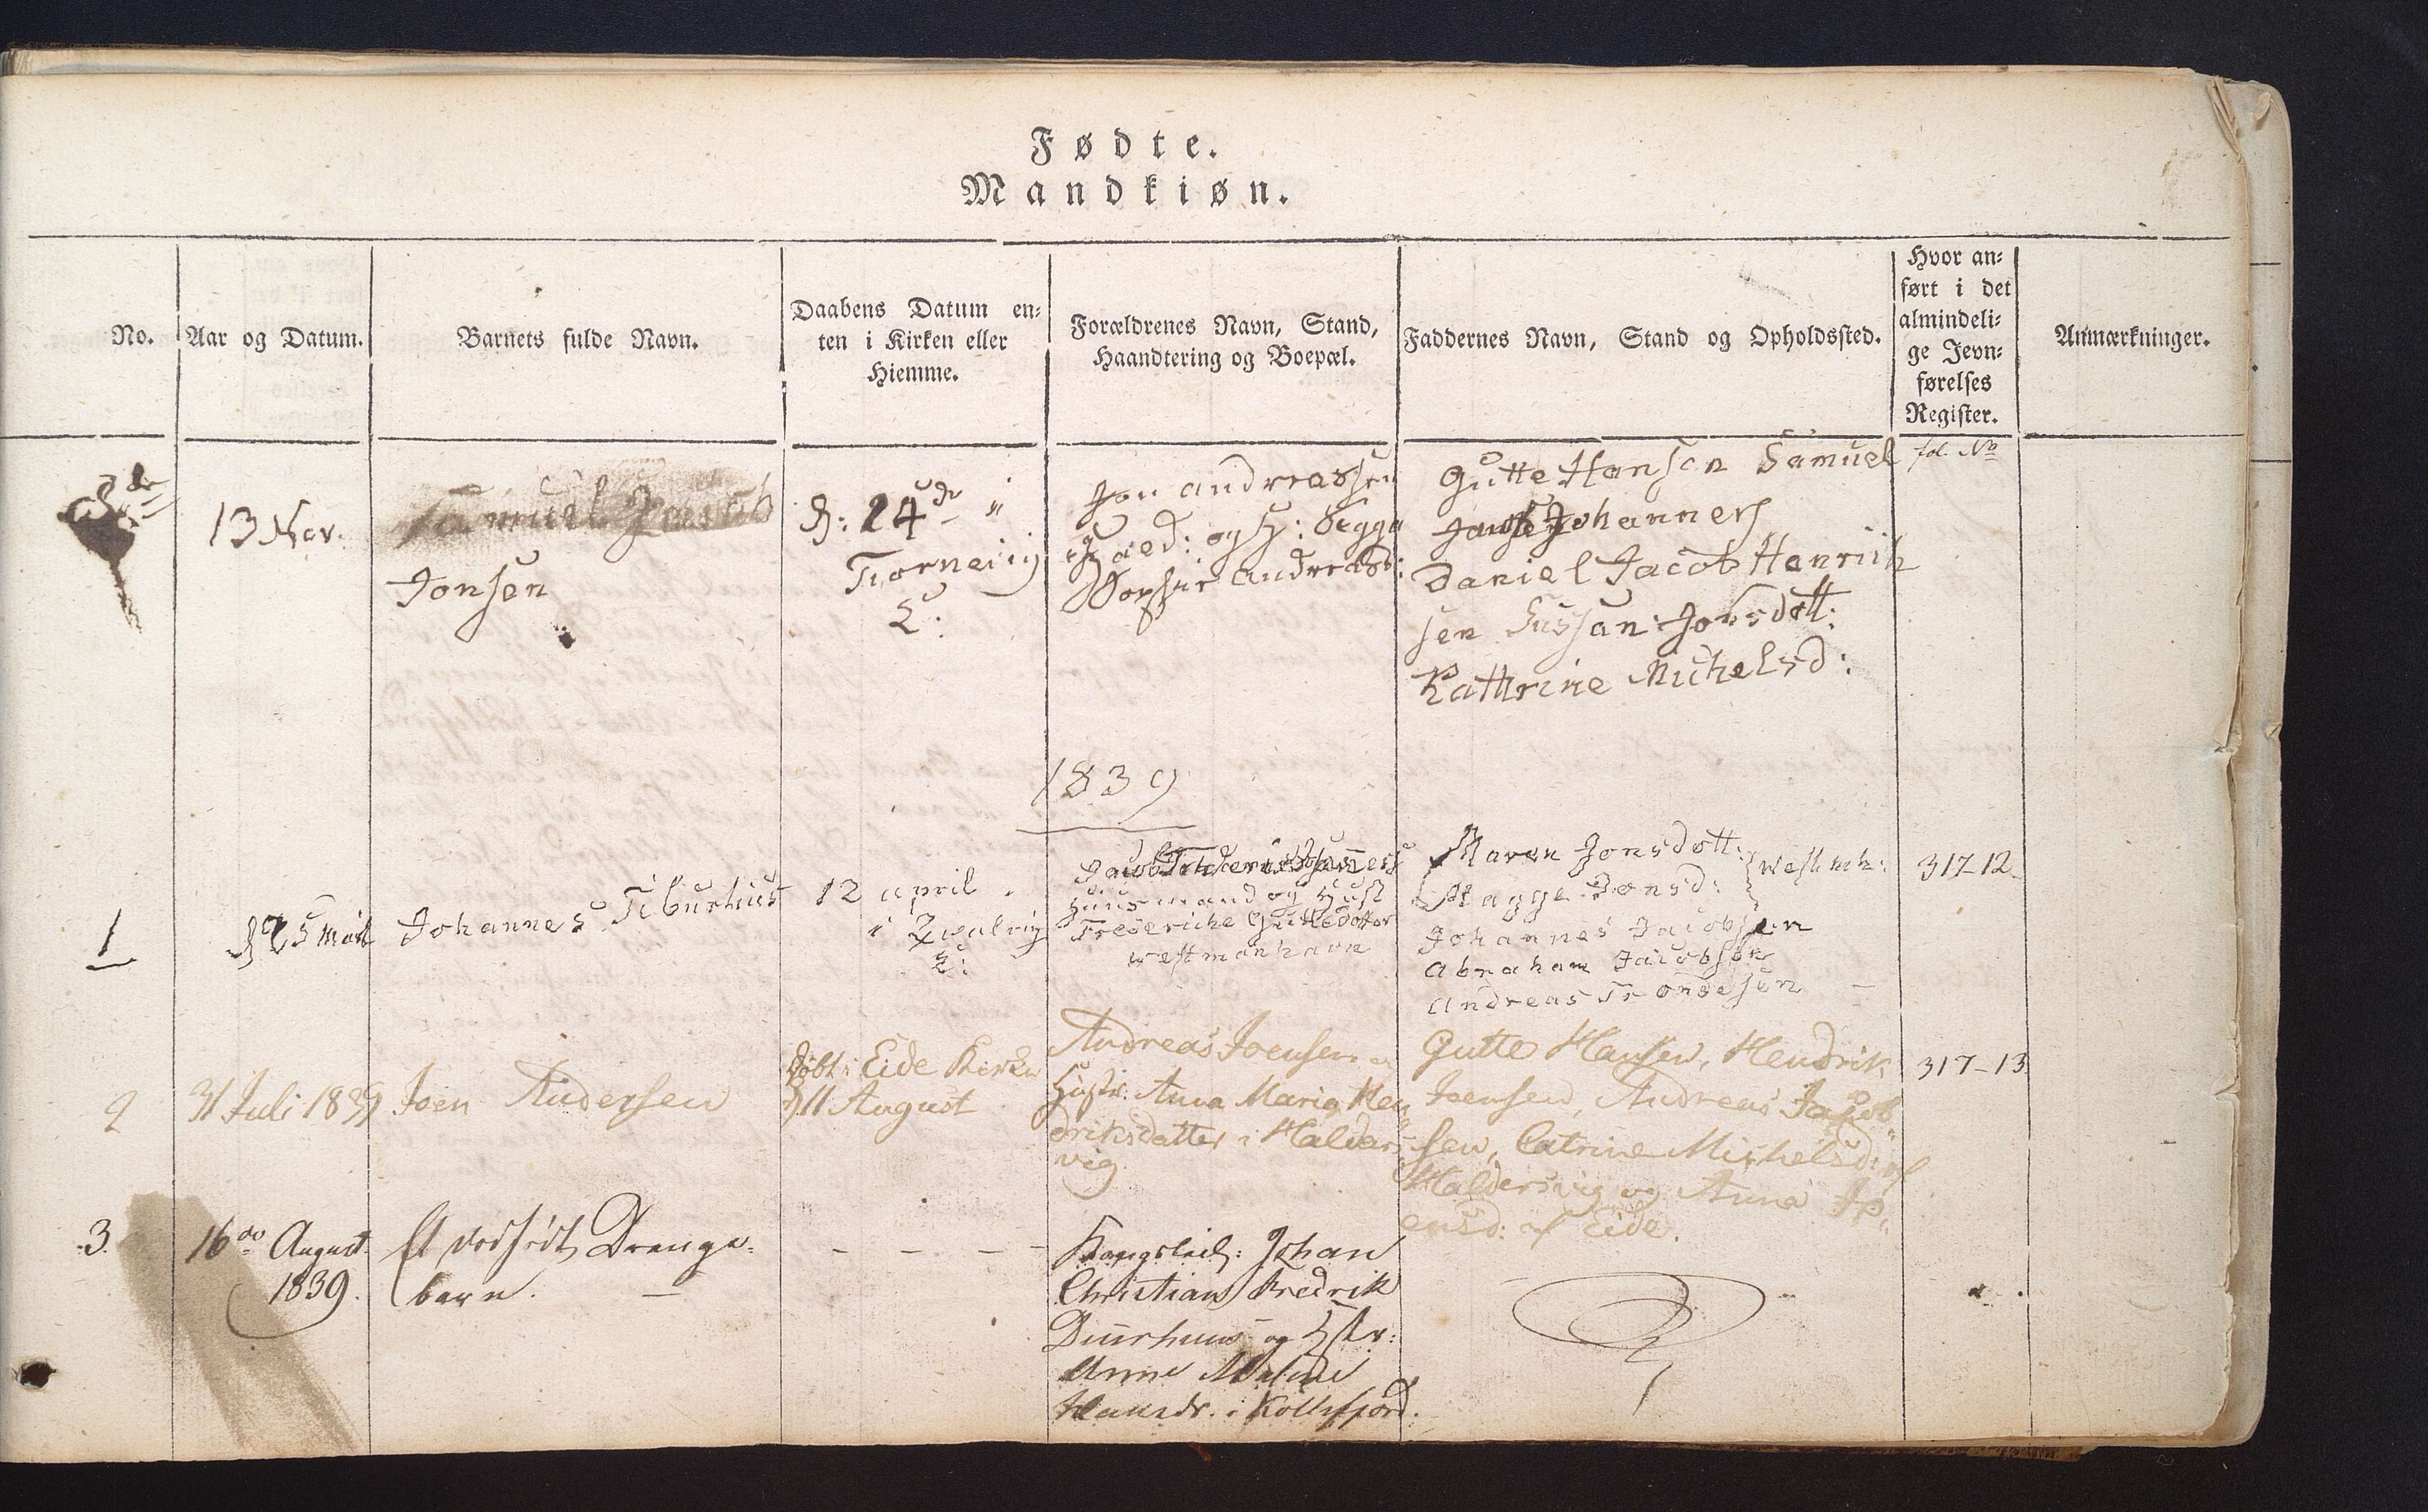 Fødte.
Mandkiøn.
No.
Aar og Datum.
Barnets fulde Navn.
Daabens Datum en=
ten i Kirken eller
Hiemme.
Forældrenes Navn, Stand,
Haandtering og Boepæl.
Faddernes Navn, Stand og Opholdssted.
Hvor an=
ført i det
almindeli=
ge Jevn=
førelses
Register.
Anmærkninger.
13 Nov.
Samuel Jacob
Jonsen
d: 24de i
Tiørnevig
Jon andreassen
og H:
andreasd:
Gutte Hansen Samuel
Johanners
Daniel Jacob Henrich
sen Sussan Jonsdott:
Kathrine Michelsd:
fol. No
1839
1
25 Mart
Johannes Tiburtius
12 april
i Qvalvig
Huusmand og Hust
Frederiche Guttedotter
westmanhavn
Maren Jonsdott:
Jonsd:
westmh:
Johannes Jacobsen
Abraham Jacobsen
Andreas Trondesen
317-12
2
31 Juli 1839
Joen Andersen
döbt i Eide Kirke
d 11 August
Andreas Joensen
Hustr. Anna Maria Hen
driksdatter i Halders
vig
Gutte Hansen, Hendrik
Joensen, Andreas Jacob
sen, Catrine Michelsd: af
Haldersvig og Anna Jo
ensd: af Eide.
317-13
3.
16de August
1839.
Et dødfødt Drenge=
barn.
- - - -
Johan
Christian Fredrik
Diurhuus og Hstr:
Anne
Hansdr. i Kollefjord.